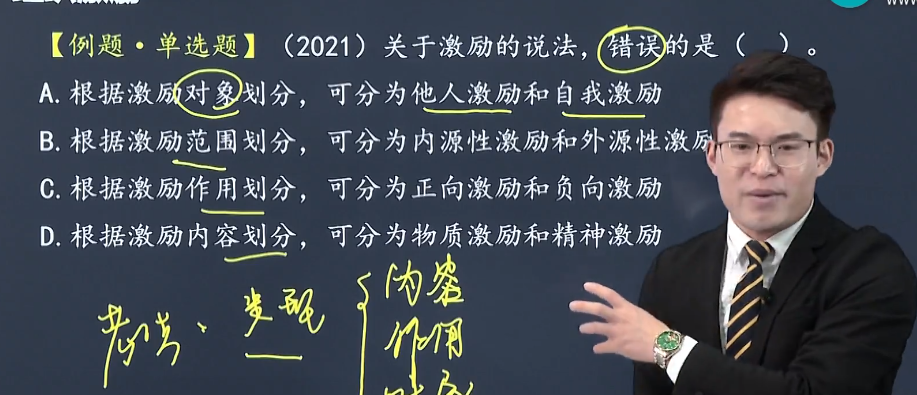 【例题·单选题】（2021）关于激励的说法，错误的是（ ）。
A. 根据激励对象划分，可分为他人激励和自我激励
B. 根据激励范围划分，可分为内源性激励和外源性激励
C. 根据激励作用划分，可分为正向激励和负向激励
D. 根据激励内容划分，可分为物质激励和精神激励
内容
作用